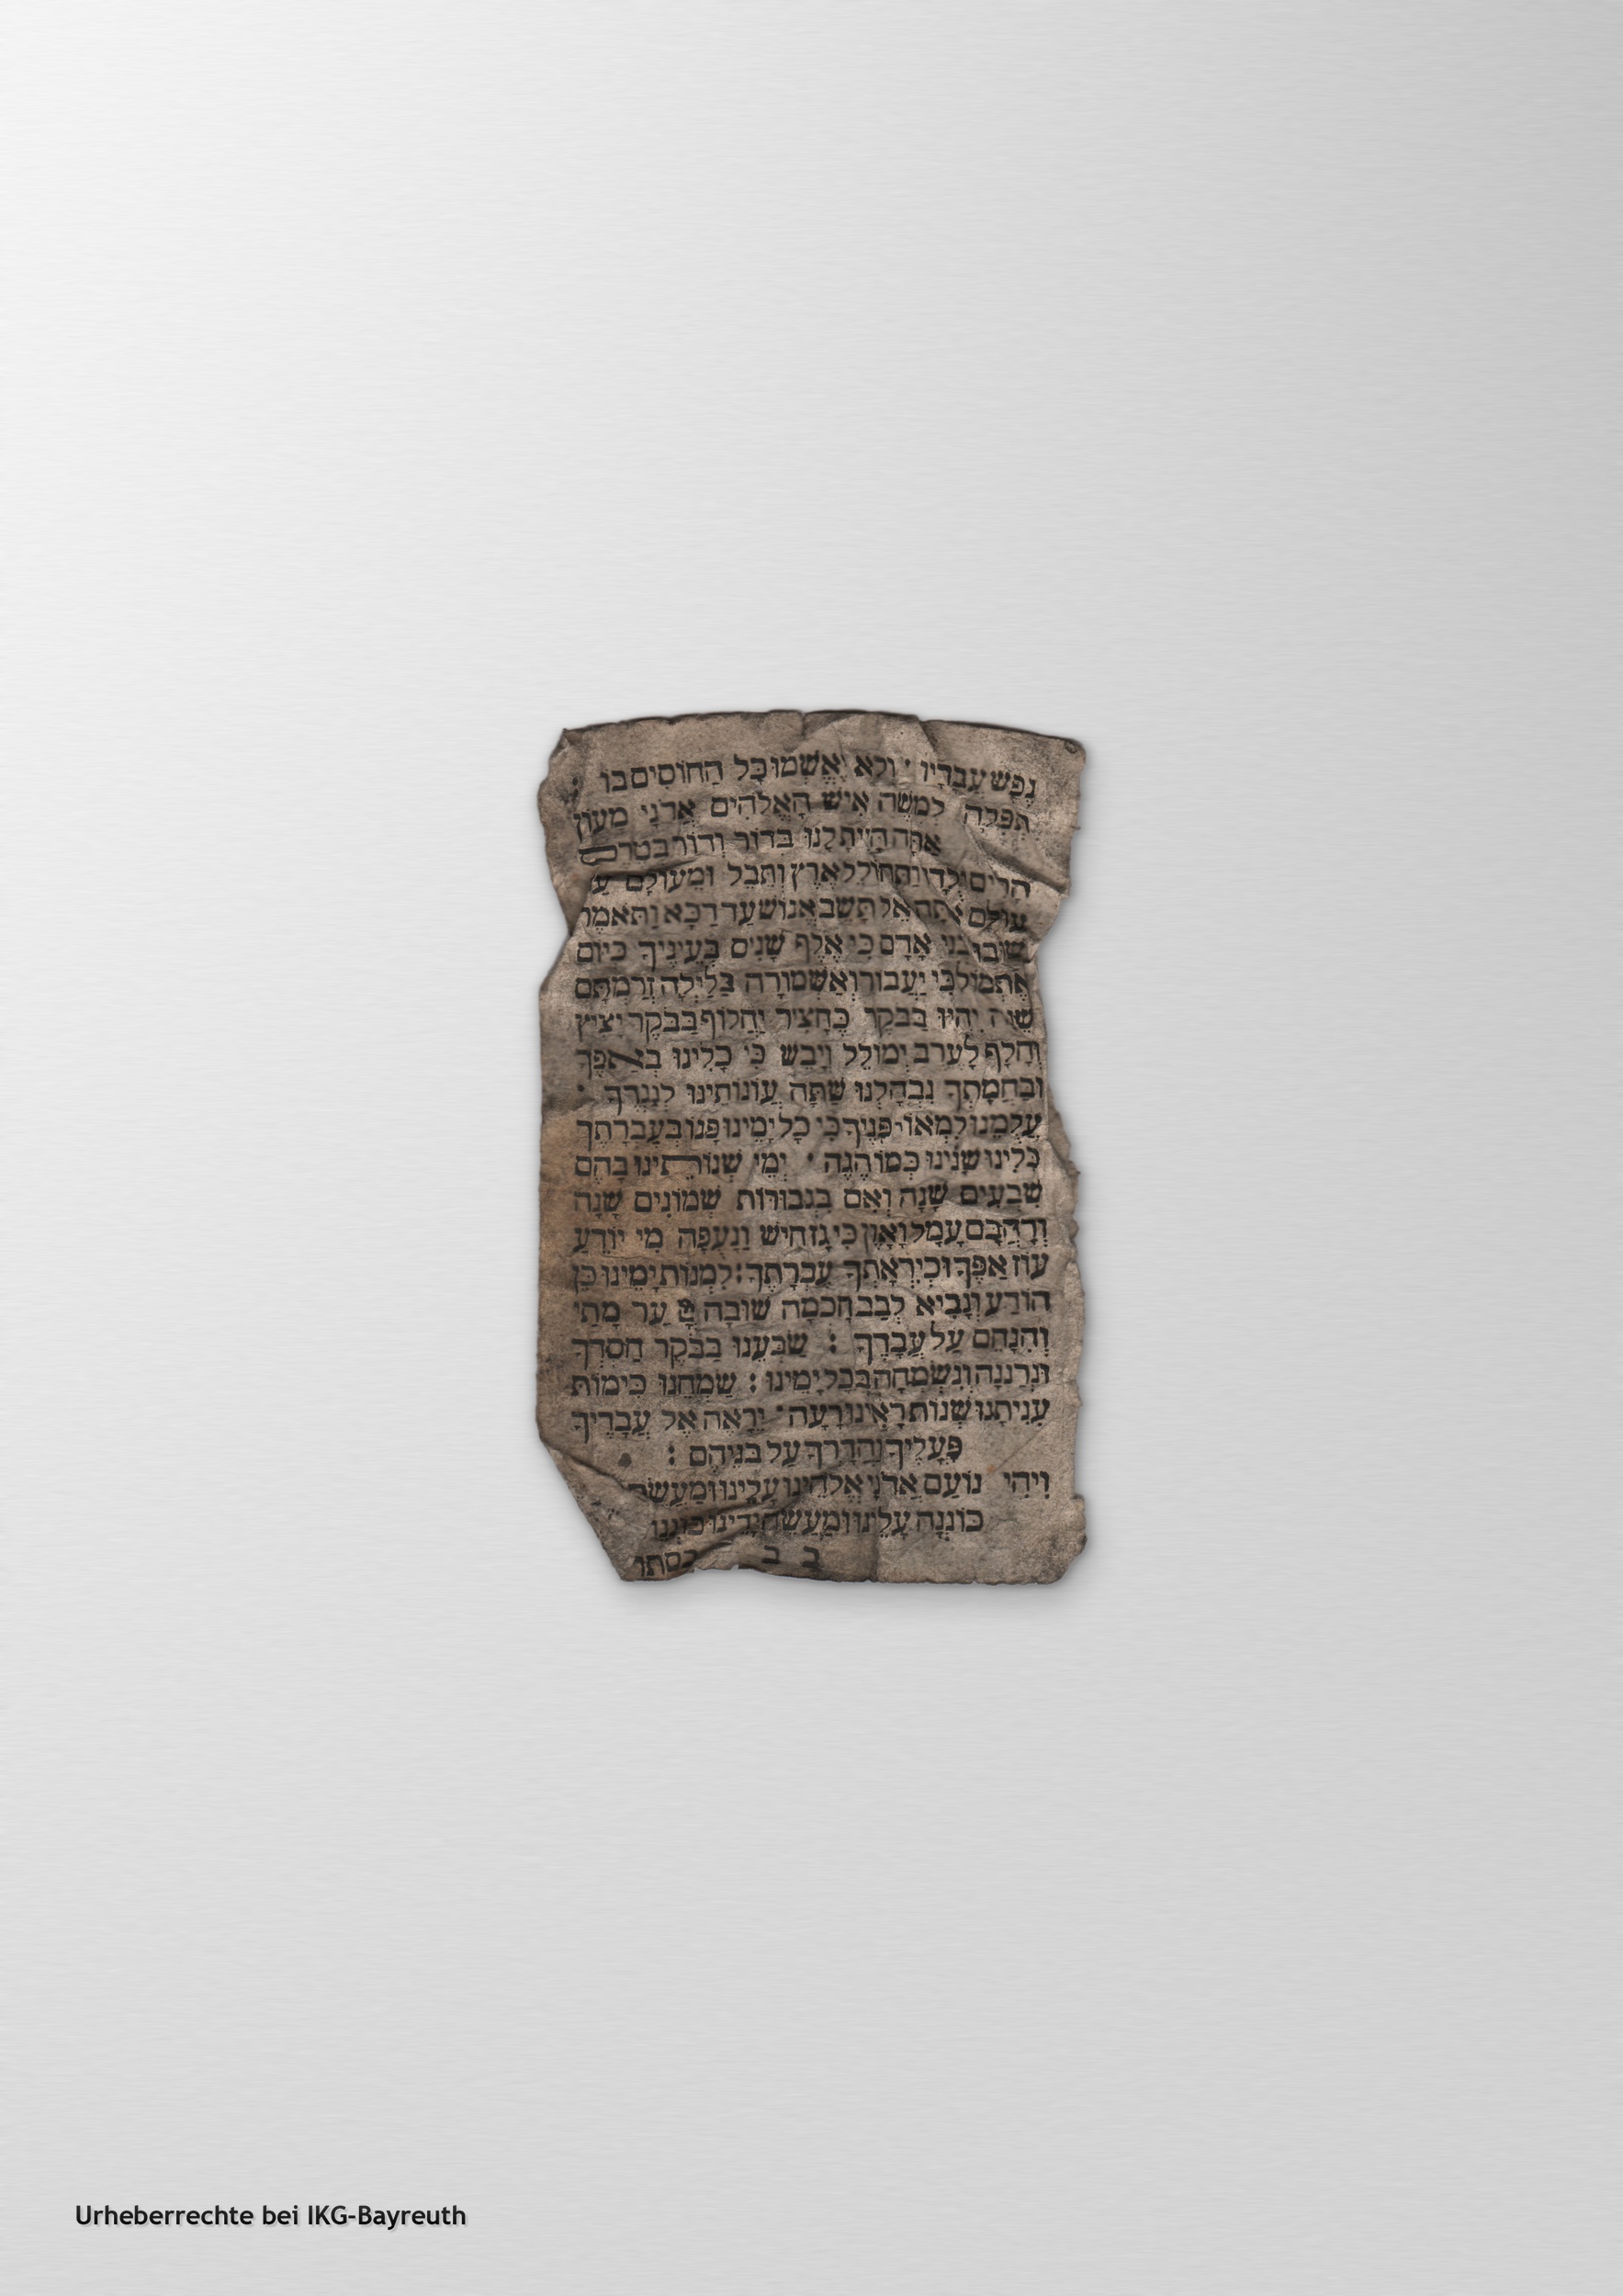 נפש עבדיו · ולא יאשמו כל החוסים בו :
תפלה למשה איש האלהים אדני מעון
אתה היית לנו בדור ודור בטרם
הרים ילדו ותחולל ארץ ותבל ומעולם עד
עולם אתה אל תשב אנוש עד דכא ותאמר
שובו בני אדם כי אלף שנים בעיניך כיום
אתמול כי יעבור ואשמורה בלילה זרמתם
שנה יהיו בבקר כחציר יחלוף בבקר יציץ
וחלף לערב ימולל ויבש כי כלינו באפך
ובחמתך נבהלנו שתה עונותינו לנגדך :
עלמנו למאור פניך כי כל ימינו פנו בעברתך
כלינו שנינו כמו הגה · ימי שנותינו בהם
שבעים שנה ואם בגבורות שמונים שנה
ורהבם עמל ואון כי גז חיש ונעפה מי יודע
עוז אפך וכיראתך עברתך : למנות ימינו כן
הודע ונביא לבב חכמה שובה עד מתי
והנחם על עבדך : שבענו בבקר חסדך
ונרננה ונשמחה בכל ימינו : שמחנו כימות
עניתנו שנות ראינו רעה · יראה אל עבדיך
פעליך והדרך על בניהם :
ויהי נועם אדני אלהינו עלינו ומעשה
כוננה עלינו ומעשה ידינו כוננו
בסתר
Urheberrechte bei IKG-Bayreuth